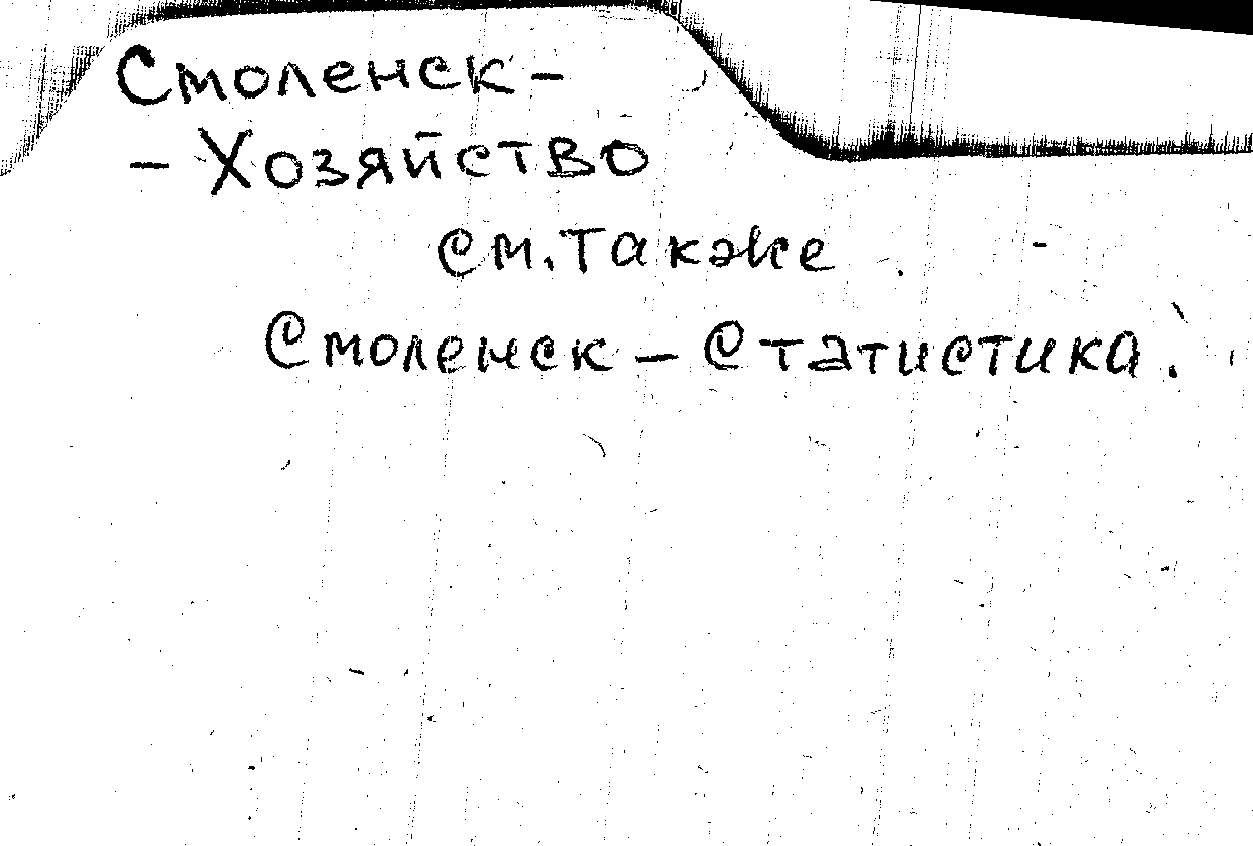 Смоленск -
- Хозяйство
см. также
Смоленск - Статистика.